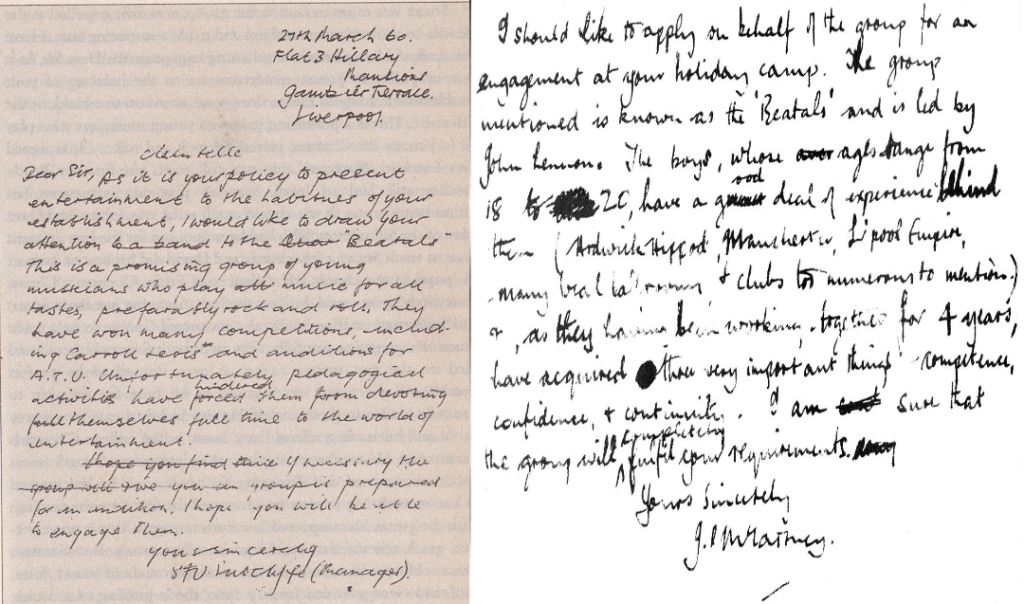 27th March 60.
Flat 3 Hillary
Mansions
Gambier Terrace
Liverpool
clientelle
Dear Sir, As it is your policy to present
entertainment to the habitues of your
establishment, I would like to draw your
attention to a band to the "Beatals"
This is a promising group of young
musicians who play all music for all
tastes, preferably rock and roll. They
have won many competitions, includ-
ing Carroll Levis" and auditions for
A.T.V. Unfortunately pedagogical
hindered
activities have forced them from devoting
full themselves full time to the world of
entertainment.
I hope you find time If necessary the
group will give you an group is prepared
for an audition. I hope you will be able
to engage them.
yours sincerely
STU Sutcliffe (Manager).
I should like to apply on behalf of the group for an
engagement at your holiday camp. The group
mentioned is known as the 'Beatals' and is led by
John Lennon. The boys, whose ages range from
ood
18 to 20, have a g deal of experience behind
them (Ardwick Hippod, Manchester, L'pool Empire,
many local ballrooms, & clubs too numerous to mention)
&, as they having been working together for 4 years,
have acquired three very important things - competence,
confidence, & continuity. I am sure that
completely
the group will fulfil your requirements.
Yours Sincerely
J. P. McCartney.